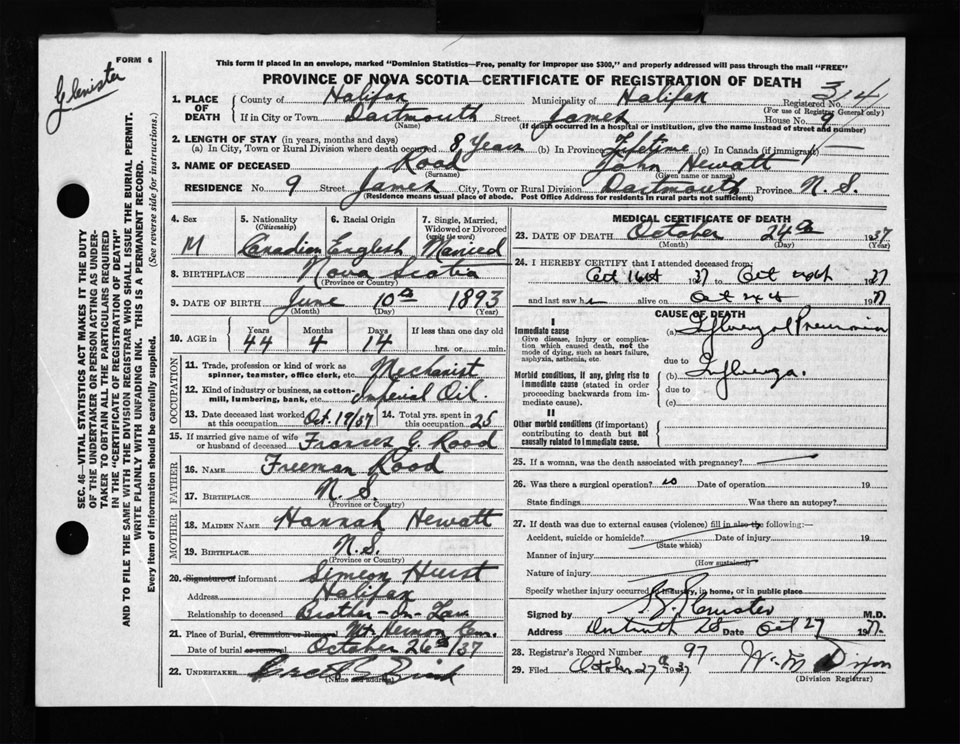 Glenister
FORM 6
This form if placed in an envelope, marked "Dominion Statistics—Free, penalty for improper use $300," and properly addressed will pass through the mail "FREE"
PROVINCE OF NOVA SCOTIA—CERTIFICATE OF REGISTRATION OF DEATH
1. PLACE OF DEATH County of Halifax Municipality of Halifax Registered No. 314
(For use of Registrar General only)
If in City or Town Dartmouth Street James House No. 9
(Name) (If death occurred in a hospital or institution, give the name instead of street and number)
2. LENGTH OF STAY (in years, months and days)
(a) In City, Town or Rural Division where death occurred 8 Years (b) In Province Lifetime (c) In Canada (if immigrant)
3. NAME OF DECEASED Rood John Hewatt
(Surname) (Given name or name)
RESIDENCE No. 9 Street James City, Town or Rural Division Dartmouth Province N. S.
(Residence means usual place of abode. Post Office Address for residents in rural parts not sufficient)
SEC. 46—VITAL STATISTICS ACT MAKES IT THE DUTY
OF THE UNDERTAKER OR PERSON ACTING AS UNDER-
TAKER TO OBTAIN ALL THE PARTICULARS REQUIRED
IN THE "CERTIFICATE OF REGISTRATION OF DEATH"
AND TO FILE THE SAME WITH THE DIVISION REGISTRAR WHO SHALL ISSUE THE BURIAL PERMIT.
WRITE PLAINLY WITH UNFADING INK. THIS IS A PERMANENT RECORD.
Every item of information should be carefully supplied. (See reverse side for instructions.)
4. Sex 5. Nationality 6. Racial Origin 7. Single, Married,
(Citizenship) Widowed or Divorced
(write the word)
M Canadian English Married
8. BIRTHPLACE Nova Scotia
(Province or Country)
9. DATE OF BIRTH June 10th 1893
(Month) (Day) (Year)
10. AGE in Years Months Days If less than one day old
44 4 14 hrs. or min.
OCCUPATION
11. Trade, profession or kind of work as
spinner, teamster, office clerk, etc. Mechanist
12. Kind of industry or business, as cotton-
mill, lumbering, bank, etc. Imperial Oil.
13. Date deceased last worked at this occupation Oct. 19/37 14. Total yrs. spent in this occupation 25
15. If married give name of wife
or husband of deceased Frances G. Rood
FATHER
16. NAME Freeman Rood
17. BIRTHPLACE N. S.
(Province or Country)
MOTHER
18. MAIDEN NAME Hannah Hewatt
19. BIRTHPLACE N.S.
(Province or Country)
20. Signature of informant Simeon Hurst
Address Halifax
Relationship to deceased Brother-in-Law
21. Place of Burial, Cremation or Removal Mt. Hermon Cem.
Date of burial or removal October 26th/37
22. UNDERTAKER
(Name and address)
MEDICAL CERTIFICATE OF DEATH
23. DATE OF DEATH October 24th 1937
(Month) (Day) (Year)
24. I HEREBY CERTIFY that I attended deceased from
Oct 16th 1937 to Oct 1937
and last saw h alive on Oct 24 1937
CAUSE OF DEATH
I
Immediate cause
Give disease, injury or complica-
tion which caused death, not the
mode of dying, such as heart failure,
asphyxia, asthenia, etc.
(a) Influenzal Pneumonia
due to
Morbid conditions, if any, giving rise to
immediate cause (stated in order
proceeding backwards from im-
mediate cause).
(b) Influenza.
due to
(c)
II
Other morbid conditions (if important)
contributing to death but not
causally related to immediate cause.
25. If a woman, was the death associated with pregnancy?
26. Was there a surgical operation? no Date of operation 19
State findings Was there an autopsy?
27. If death was due to external causes (violence) fill in also the following:—
Accident, suicide or homicide? Date of injury 19
(State which)
Manner of injury
(How sustained)
Nature of injury
Specify whether injury occurred in industry, in home, or in public place
Signed by Glenister M.D.
Address Date Oct 27 1937.
28. Registrar's Record Number 97
29. Filed October 27th 1937 W. M. Dixon
(Division Registrar)